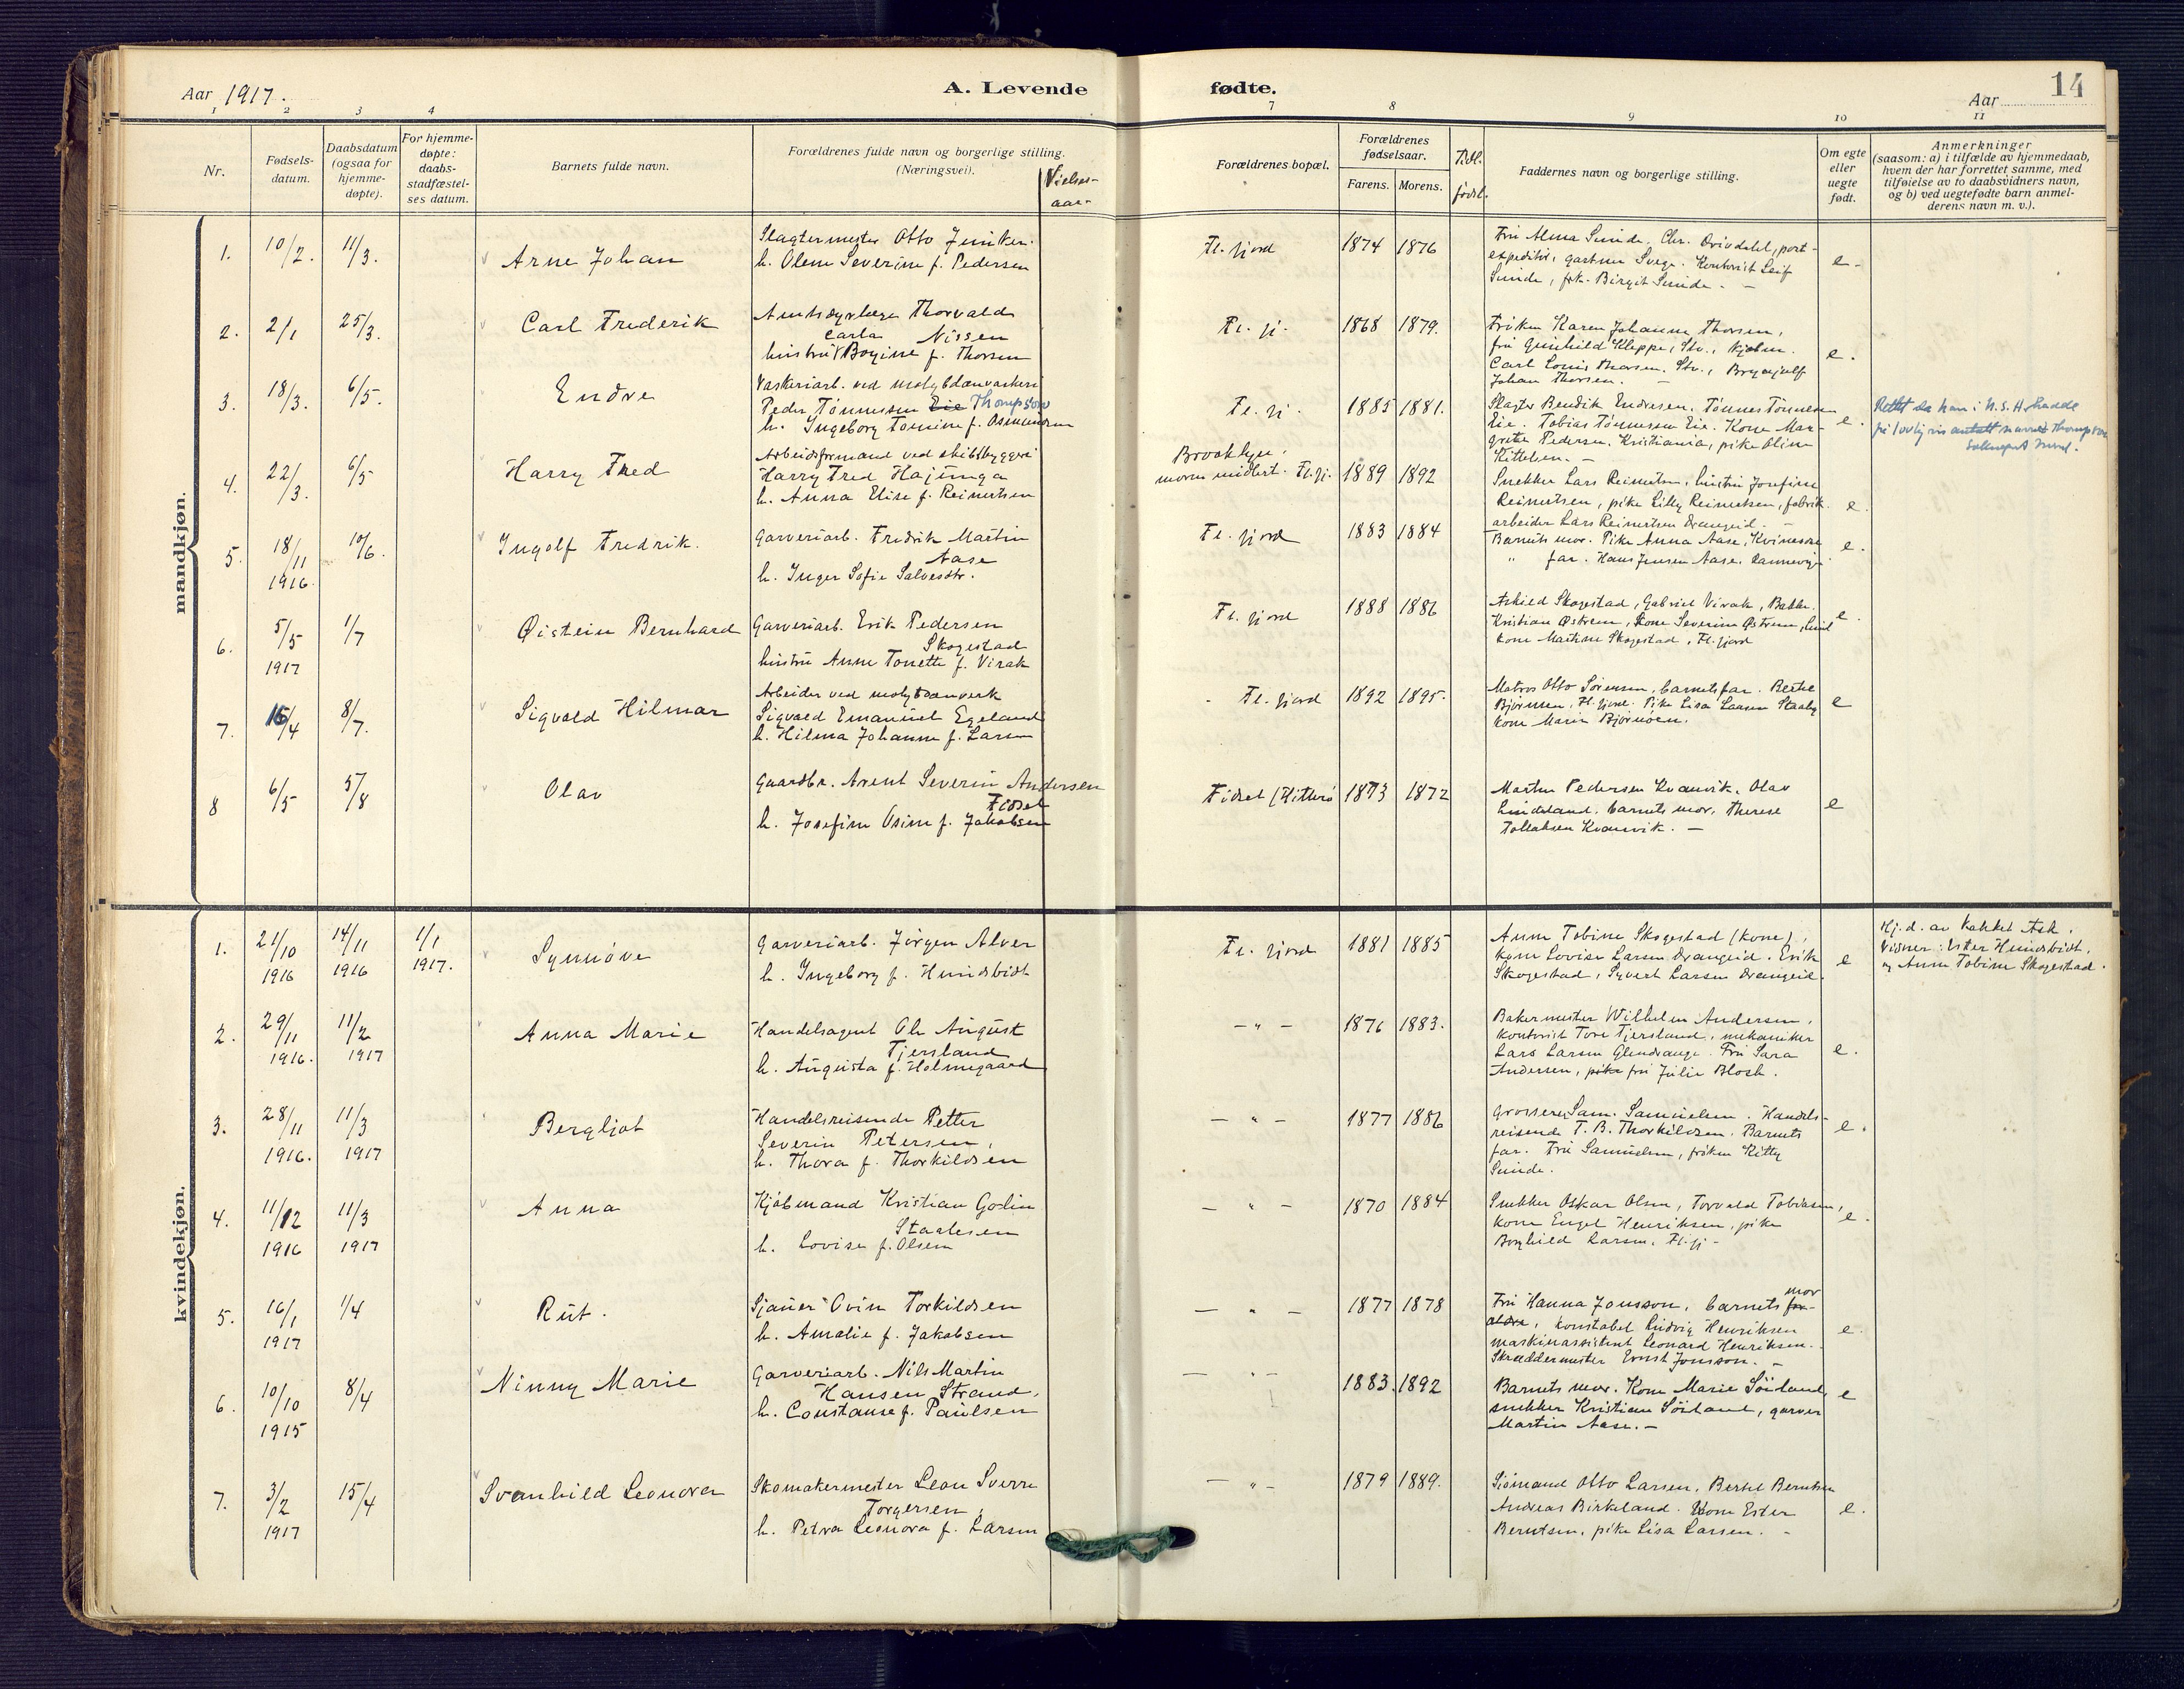 Aar 1917.
A. Levende
fødte.
Aar
14
1 2 3 4
7 8 9 10 11
Nr.
Fødsels-
datum.
Daabsdatum
(ogsaa for
hjemme-
døpte).
For hjemme-
døpte:
daabs-
stadfæstel-
ses datum.
Barnets fulde navn.
Forældrenes fulde navn og borgerlige stilling.
(Næringsvei).
Vielses-
aar-
Forældrenes bopæl.
Forældrenes
fødselsaar.
Farens. Morens.
Tidl.
fødsl.
Faddernes navn og borgerlige stilling.
Om egte
eller
uegte
født.
Anmerkninger
(saasom: a) i tilfælde av hjemmedaab,
hvem der har forrettet samme, med
tilføielse av to daabsvidners navn,
og b) ved uegtefødte barn anmel-
derens navn m. v.).
mandkjøn.
1. 10/2. 11/3. Arne Johan
Slagtermester Otto Juniker.
h. Olene Severine f. Pedersen
Fl. fjord 1874 1876
Fru Alma Sunde. Chr. Drivdahl, post-
expeditør, gartner Svege. Kontorist Leif
Sunde, frk. Birgit Sunde. -
e-
2. 2/1 25/3. Carl Frederik
Amtsdyrlæge Thorvald
Carla Nissen
hustru Borgine f. Thorsen
Fl. fj. 1868 1879.
Frøken Karen Johanne Thorsen,
fru Gunhild Kleppe, Stv., kjøbm.
Carl Louis Thorsen, Stv., Brynjulf
Johan Thorsen. -
e.
3. 18/3. 6/5. Endre
Vaskeriarb. ved molybdænvaskeri
Peder Tønnessen Eie Thompson
h. Ingeborg Tomine f. Osmundsen
Fl. fj. 1885 1881.
Slagter Bendik Endresen, Tønnes Tønnesen
Eie. Tobias Tønnesen Eie. Kone Mar-
grete Pedersen, Kristiania, pike Oline
Kittelsen. -
e.
Rettet da han i U.S.A. hadde
på lovlig vis antatt navnet Thompson
Sokneprest
4. 22/3. 6/5 Harry Fred
Arbeidsformand ved skibsbyggeri
Harry Fred Hajunga
h. Anna Elise f. Reinertsen
Brooklyn,
moren midlert. Fl.fj. 1889 1892
Snekker Lars Reinertsen, hustru Josefine
Reinertsen, pike Lilly Reinertsen, fabrik-
arbeider Lars Reinertsen Drangeid. -
e.
5. 18/11 10/6. Ingolf Fredrik.
1916.
Garveriarb. Fredrik Martin
Aase
h. Inger Sofie Salvesdtr.
Fl. fjord 1883 1884
Barnets mor. Pike Anna Aase, Kvinesdal
" far. Hans Jensen Aase.
e.
6. 5/5 1/7 Øistein Bernhard
1917
Garveriarb. Erik Pedersen
Skogestad
hustru Anne Tonette f. Virak
Fl. fjord 1888 1886
Askild Skogestad, Gabriel Virak, Bakke.
Kristian Østrem, kone Severine Østrem,
kone Martine Skogestad, Fl. fjord
e.
7. 15/4 8/7. Sigvald Hilmar
Arbeider ved molybdænverk
Sigvald Emanuel Egeland
h. Hilma Johanne f. Larsen
Fl. fjord 1892 1895.
Matros Otto Sørensen, barnets far. Berte
Bjørnsen, Fl. fjord. Pike Lisa Larsen Staaby
kone Marie Bjørnøen.
e
8 6/5 5/8 Olav
Gaardbr. Arent Severin Andersen
Fidsel
h. Josefine Osine f. Jakobsen
Fidsel (Hitterø 1873 1872
Martin Pedersen Kvanvik, Olav
Lindeland. barnets mor, Therese
Tollaksen Kvanvik. -
e
kvindekjøn.
1. 21/10 14/11 1/1 Synnøve
1916 1916 1917.
Garveriarb. Jørgen Alver
h. Ingeborg f. Hundsbidt
Fl. fjord 1881 1885
Anne Tobine Skogestad (kone),
kone Lovise Larsen Drangeid. Erik
Skogestad, Syvert Larsen Drangeid.
e
Hj. d. av Rakkel Ask.
Vidner: Ester Hundsbidt.
og Anne Tobine Skogestad.
2. 29/11 11/2 Anna Marie
1916. 1917
Handelsagent Ole August
Tjersland
h. Augusta f. Holmegaard
- " - 1876 1883.
Bakermester Wilhelm Andersen,
kontorist Tore Tjersland, mekaniker
Lars Larsen Glendrange. Fru Sara
Andersen, pike fru Julie Blosk.
e.
3. 28/11 11/3 Bergljot
1916. 1917
Handelsreisende Petter
Severin Petersen,
h. Thora f. Thorkildsen
- " - 1877 1886
Grosserer Sam. Samuelsen. Handels-
reisende T. B. Thorkildsen. Barnets
far. Fru Samuelsen, frøken Kitty
Sunde.
e.
4. 11/12 11/3 Anna
1916 1917
Kjøbmand Kristian Godin
Staalesen
h. Lovise f. Olsen
- " - 1870 1884
Snekker Oskar Olsen, Torvald Tobiasen,
kone Engel Henriksen, pike
Borghild Larsen, Fl.fj -
e.
5. 16/1 1/4 Rut.
1917
Sjauer Ovin Torkildsen
h. Amalie f. Jakobsen
- " - 1877 1878
mor
Fru Hanna Jonsson, barnets for-
ældre, konstabel Ludvig Henriksen
maskinassistent Leonard Henriksen.
Skræddermester Ernst Jonsson. -
e.
6. 10/10 8/4 Ninny Marie
1915
Garveriarb. Nils Martin
Hansen Strand,
h. Constanse f. Paulsen
- " - 1883. 1892
Barnets mor. Kone Marie Søiland,
snekker Kristian Søiland, garver
Martin Aase. -
e
7. 3/2 15/4 Svanhild Leonora
1917
Skomakermester Leon Sverre
Torgersen,
h. Petra Leonora f. Larsen
- " - 1879 1889.
Sjømand Otto Larsen, Bertel Berntsen
Andreas Birkeland. Kone Ester
Berntsen, pike Lisa Larsen. -
e.